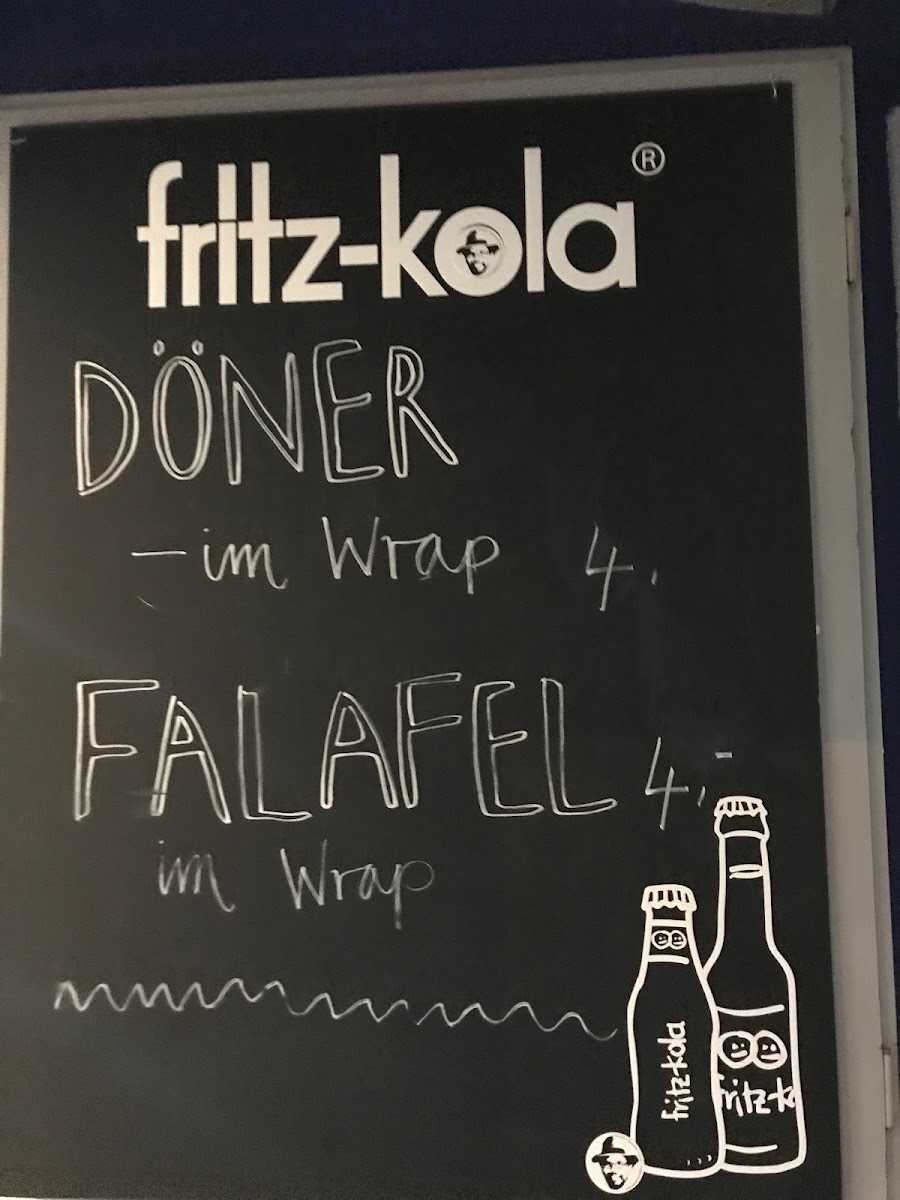 fritz-kola®
DÖNER
- im Wrap 4.
FALAFEL 4,-
im Wrap
fritz-kola
fritz-k